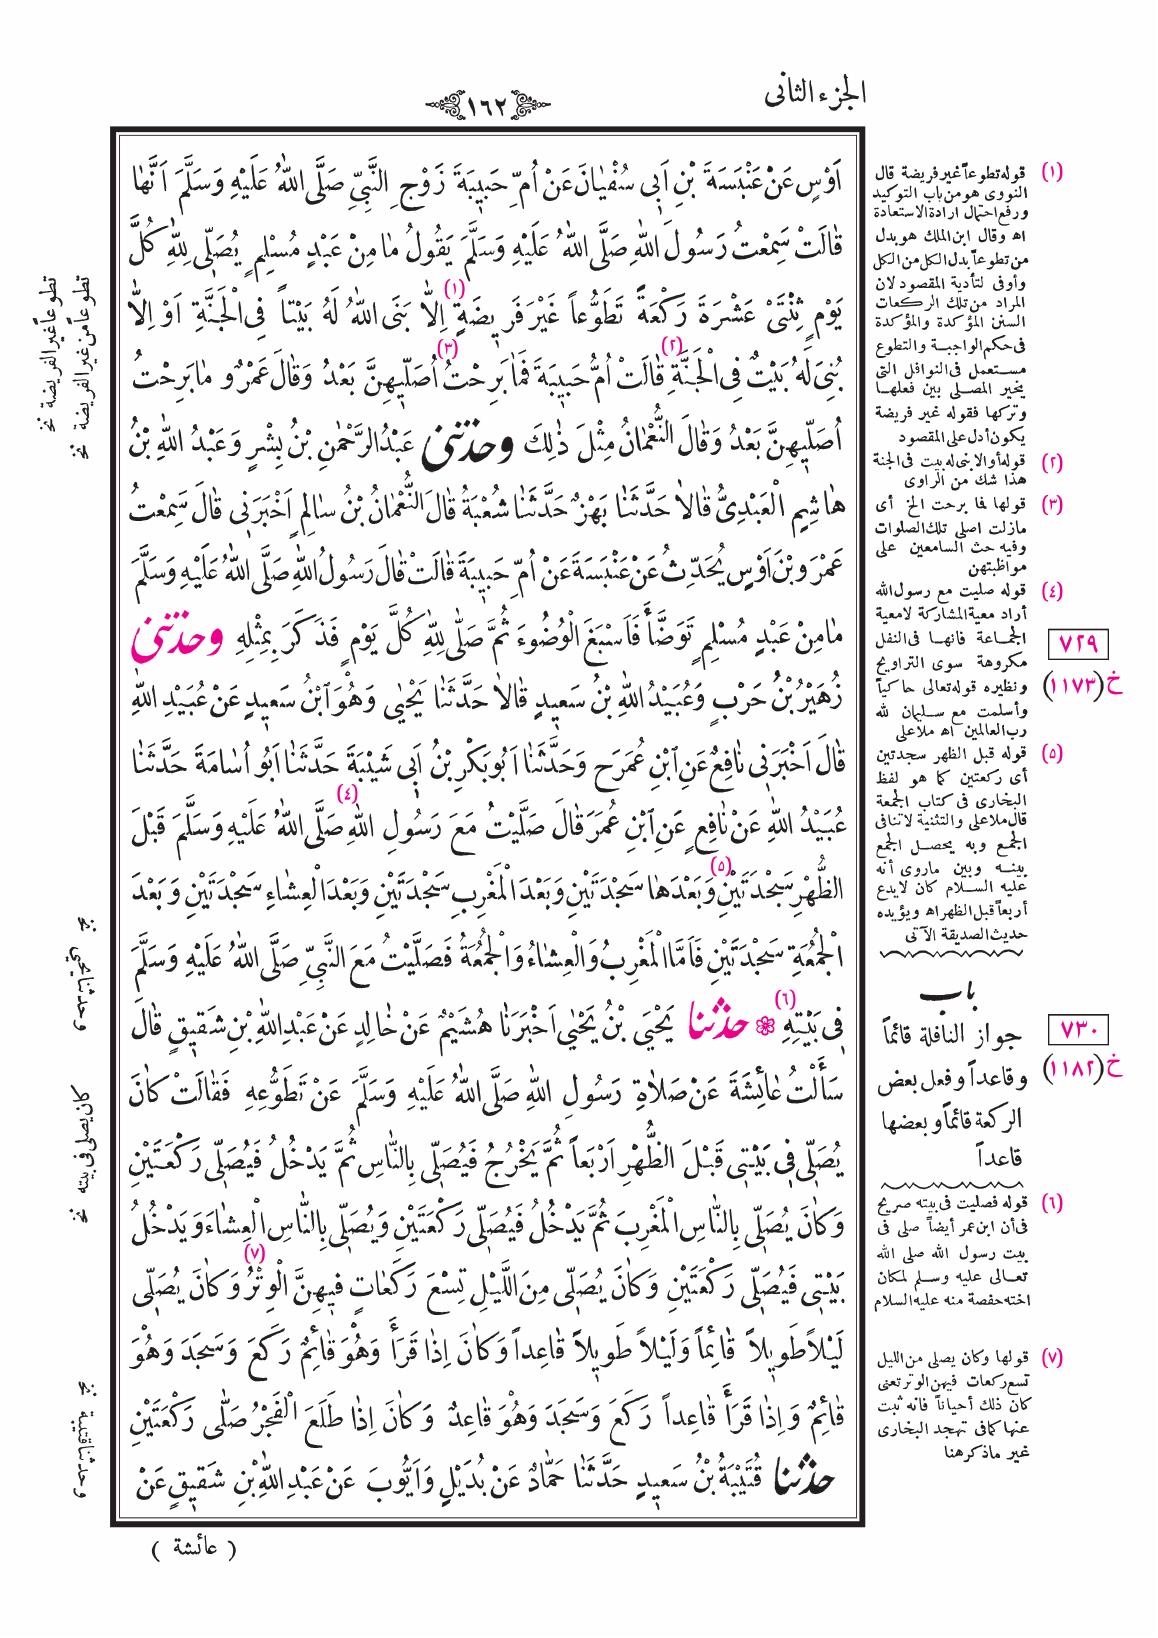 الجزء الثانى
١٦٢
اَوْسٍ عَنْ عَنْبَسَةَ بْنِ اَبِى سُفْيَانَ عَنْ اُمِّ حَبِيبَةَ زَوْجِ النَّبِىِّ صَلَّى اللّٰهُ عَلَيْهِ وَسَلَّمَ اَنَّهَا
قَالَتْ سَمِعْتُ رَسُولَ اللّٰهِ صَلَّى اللّٰهُ عَلَيْهِ وَسَلَّمَ يَقُولُ مَا مِنْ عَبْدٍ مُسْلِمٍ يُصَلِّى لِلّٰهِ كُلَّ
يَوْمٍ ثِنْتَىْ عَشْرَةَ رَكْعَةً تَطَوُّعاً غَيْرَ فَرِيضَةٍ (١) اِلاَّ بَنَى اللّٰهُ لَهُ بَيْتاً فِى الْجَنَّةِ اَوْ اِلاَّ
بُنِىَ لَهُ بَيْتٌ فِى الْجَنَّةِ (٢) قَالَتْ اُمُّ حَبِيبَةَ فَمَا بَرِحْتُ (٣) اُصَلِّيهِنَّ بَعْدُ وَقَالَ عَمْرٌو مَا بَرِحْتُ
اُصَلِّيهِنَّ بَعْدُ وَقَالَ النُّعْمَانُ مِثْلَ ذٰلِكَ وحدثنى عَبْدُ الرَّحْمٰنِ بْنُ بِشْرٍ وَعَبْدُ اللّٰهِ بْنُ
هَاشِمٍ الْعَبْدِىُّ قَالاَ حَدَّثَنَا بَهْزٌ حَدَّثَنَا شُعْبَةُ قَالَ النُّعْمَانُ بْنُ سَالِمٍ اَخْبَرَنِى قَالَ سَمِعْتُ
عَمْرَو بْنَ اَوْسٍ يُحَدِّثُ عَنْ عَنْبَسَةَ عَنْ اُمِّ حَبِيبَةَ قَالَتْ قَالَ رَسُولُ اللّٰهِ صَلَّى اللّٰهُ عَلَيْهِ وَسَلَّمَ
مَا مِنْ عَبْدٍ مُسْلِمٍ تَوَضَّأَ فَاَسْبَغَ الْوُضُوءَ ثُمَّ صَلّٰى لِلّٰهِ كُلَّ يَوْمٍ فَذَكَرَ بِمِثْلِهِ وحدثنى
زُهَيْرُ بْنُ حَرْبٍ وَعُبَيْدُ اللّٰهِ بْنُ سَعِيدٍ قَالاَ حَدَّثَنَا يَحْيٰى وَهُوَ ابْنُ سَعِيدٍ عَنْ عُبَيْدِ اللّٰهِ
قَالَ اَخْبَرَنِى نَافِعٌ عَنِ ابْنِ عُمَرَ ح وَحَدَّثَنَا اَبُو بَكْرِ بْنُ اَبِى شَيْبَةَ حَدَّثَنَا اَبُو اُسَامَةَ حَدَّثَنَا
عُبَيْدُ اللّٰهِ عَنْ نَافِعٍ عَنِ ابْنِ عُمَرَ قَالَ صَلَّيْتُ مَعَ رَسُولِ اللّٰهِ (٤) صَلَّى اللّٰهُ عَلَيْهِ وَسَلَّمَ قَبْلَ
الظُّهْرِ سَجْدَتَيْنِ (٥) وَبَعْدَهَا سَجْدَتَيْنِ وَبَعْدَ الْمَغْرِبِ سَجْدَتَيْنِ وَبَعْدَ الْعِشَاءِ سَجْدَتَيْنِ وَبَعْدَ
الْجُمُعَةِ سَجْدَتَيْنِ فَاَمَّا الْمَغْرِبُ وَالْعِشَاءُ وَالْجُمُعَةُ فَصَلَّيْتُ مَعَ النَّبِىِّ صَلَّى اللّٰهُ عَلَيْهِ وَسَلَّمَ
فِى بَيْتِهِ (٦) حدثنا يَحْيَى بْنُ يَحْيٰى اَخْبَرَنَا هُشَيْمٌ عَنْ خَالِدٍ عَنْ عَبْدِ اللّٰهِ بْنِ شَقِيقٍ قَالَ
سَأَلْتُ عَائِشَةَ عَنْ صَلاَةِ رَسُولِ اللّٰهِ صَلَّى اللّٰهُ عَلَيْهِ وَسَلَّمَ عَنْ تَطَوُّعِهِ فَقَالَتْ كَانَ
يُصَلِّى فِى بَيْتِى قَبْلَ الظُّهْرِ اَرْبَعاً ثُمَّ يَخْرُجُ فَيُصَلِّى بِالنَّاسِ ثُمَّ يَدْخُلُ فَيُصَلِّى رَكْعَتَيْنِ
وَكَانَ يُصَلِّى بِالنَّاسِ الْمَغْرِبَ ثُمَّ يَدْخُلُ فَيُصَلِّى رَكْعَتَيْنِ وَيُصَلِّى بِالنَّاسِ الْعِشَاءَ وَيَدْخُلُ
بَيْتِى فَيُصَلِّى رَكْعَتَيْنِ وَكَانَ يُصَلِّى مِنَ اللَّيْلِ تِسْعَ رَكَعَاتٍ فِيهِنَّ الْوِتْرُ (٧) وَكَانَ يُصَلِّى
لَيْلاً طَوِيلاً قَائِماً وَلَيْلاً طَوِيلاً قَاعِداً وَكَانَ اِذَا قَرَأَ وَهُوَ قَائِمٌ رَكَعَ وَسَجَدَ وَهُوَ
قَائِمٌ وَاِذَا قَرَأَ قَاعِداً رَكَعَ وَسَجَدَ وَهُوَ قَاعِدٌ وَكَانَ اِذَا طَلَعَ الْفَجْرُ صَلّٰى رَكْعَتَيْنِ
حدثنا قُتَيْبَةُ بْنُ سَعِيدٍ حَدَّثَنَا حَمَّادٌ عَنْ بُدَيْلٍ وَاَيُّوبَ عَنْ عَبْدِ اللّٰهِ بْنِ شَقِيقٍ عَنْ
( عائشة )
(١) قوله تطوعاً غير فريضة قال
النووى هو من باب التوكيد
ورفع احتمال ارادة الاستعادة
اه وقال ابن الملك هو بدل
من تطوعاً بدل الكل من الكل
وأوفى لتأدية المقصود لان
المراد من تلك الركعات
السنن المؤكدة والمؤكدة
فى حكم الواجبة والتطوع
مستعمل فى النوافل التى
يخير المصلى بين فعلها
وتركها فقوله غير فريضة
يكون أدل على المقصود
(٢) قوله أو الا بنى له بيت فى الجنة
هذا شك من الراوى
(٣) قولها فما برحت الخ أى
مازلت اصلى تلك الصلوات
وفيه حث السامعين على
مواظبتهن
(٤) قوله صليت مع رسول الله
أراد معية المشاركة لا معية
الجماعة فانها فى النفل
مكروهة سوى التراويح
ونظيره قوله تعالى حاكياً
وأسلمت مع سليمان لله
رب العالمين اه ملا على
(٥) قوله قبل الظهر سجدتين
أى ركعتين كما هو لفظ
البخارى فى كتاب الجمعة
قال ملا على والتثنية لاتنافى
الجمع وبه يحصل الجمع
بينه وبين ماروى أنه
عليه السلام كان لا يدع
أربعاً قبل الظهر اه ويؤيده
حديث الصديقة الآتى
باب
جواز النافلة قائماً
وقاعداً وفعل بعض
الركعة قائماً وبعضها
قاعداً
(٦) قوله فصليت فى بيته صريح
فى أن ابن عمر أيضاً صلى فى
بيت رسول الله صلى الله
تعالى عليه وسلم لمكان
اخته حفصة منه عليه السلام
(٧) قولها وكان يصلى من الليل
تسع ركعات فيهن الوتر تعنى
كان ذلك أحياناً فانه ثبت
عنها كما فى تهجد البخارى
غير ما ذكر هنا
٧٢٩
خ (١١٧٣)
٧٣٠
خ (١١٨٢)
تطوعاً من غير الفريضة نخ
تطوعاً غير الفريضة نخ
وحدثنا يحيى نخ
كان يصلى فى بيته نخ
وحدثنا قتيبة نخ